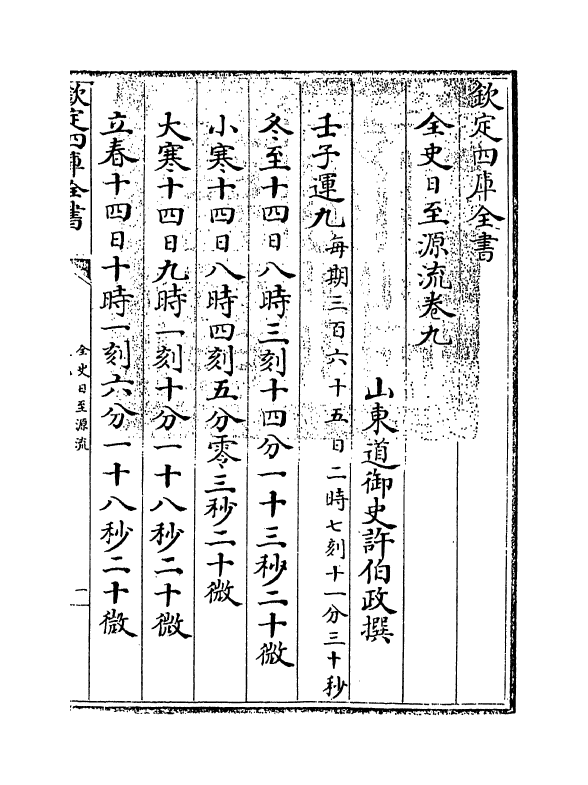 欽定四庫全書
全史日至源流卷九
山東道御史許伯政撰
壬子運九每期三百六十五日二時七刻十一分三十秒
冬至十四日八時三刻十四分一十三秒二十微
小寒十四日八時四刻五分零三秒二十微
大寒十四日九時一刻十分一十八秒二十微
立春十四日十時一刻六分一十八秒二十微
欽定四庫全書
全史日至源流
一